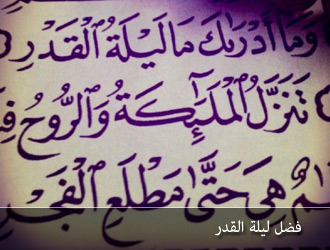 وَمَا أَدْرَىٰكَ مَا لَيْلَةُ ٱلْقَدْرِ
تَنَزَّلُ ٱلْمَلَٰٓئِكَةُ وَٱلرُّوحُ فِ
هِىَ حَتَّىٰ مَطْلَعِ ٱلْفَجْرِ
فضل ليلة القدر